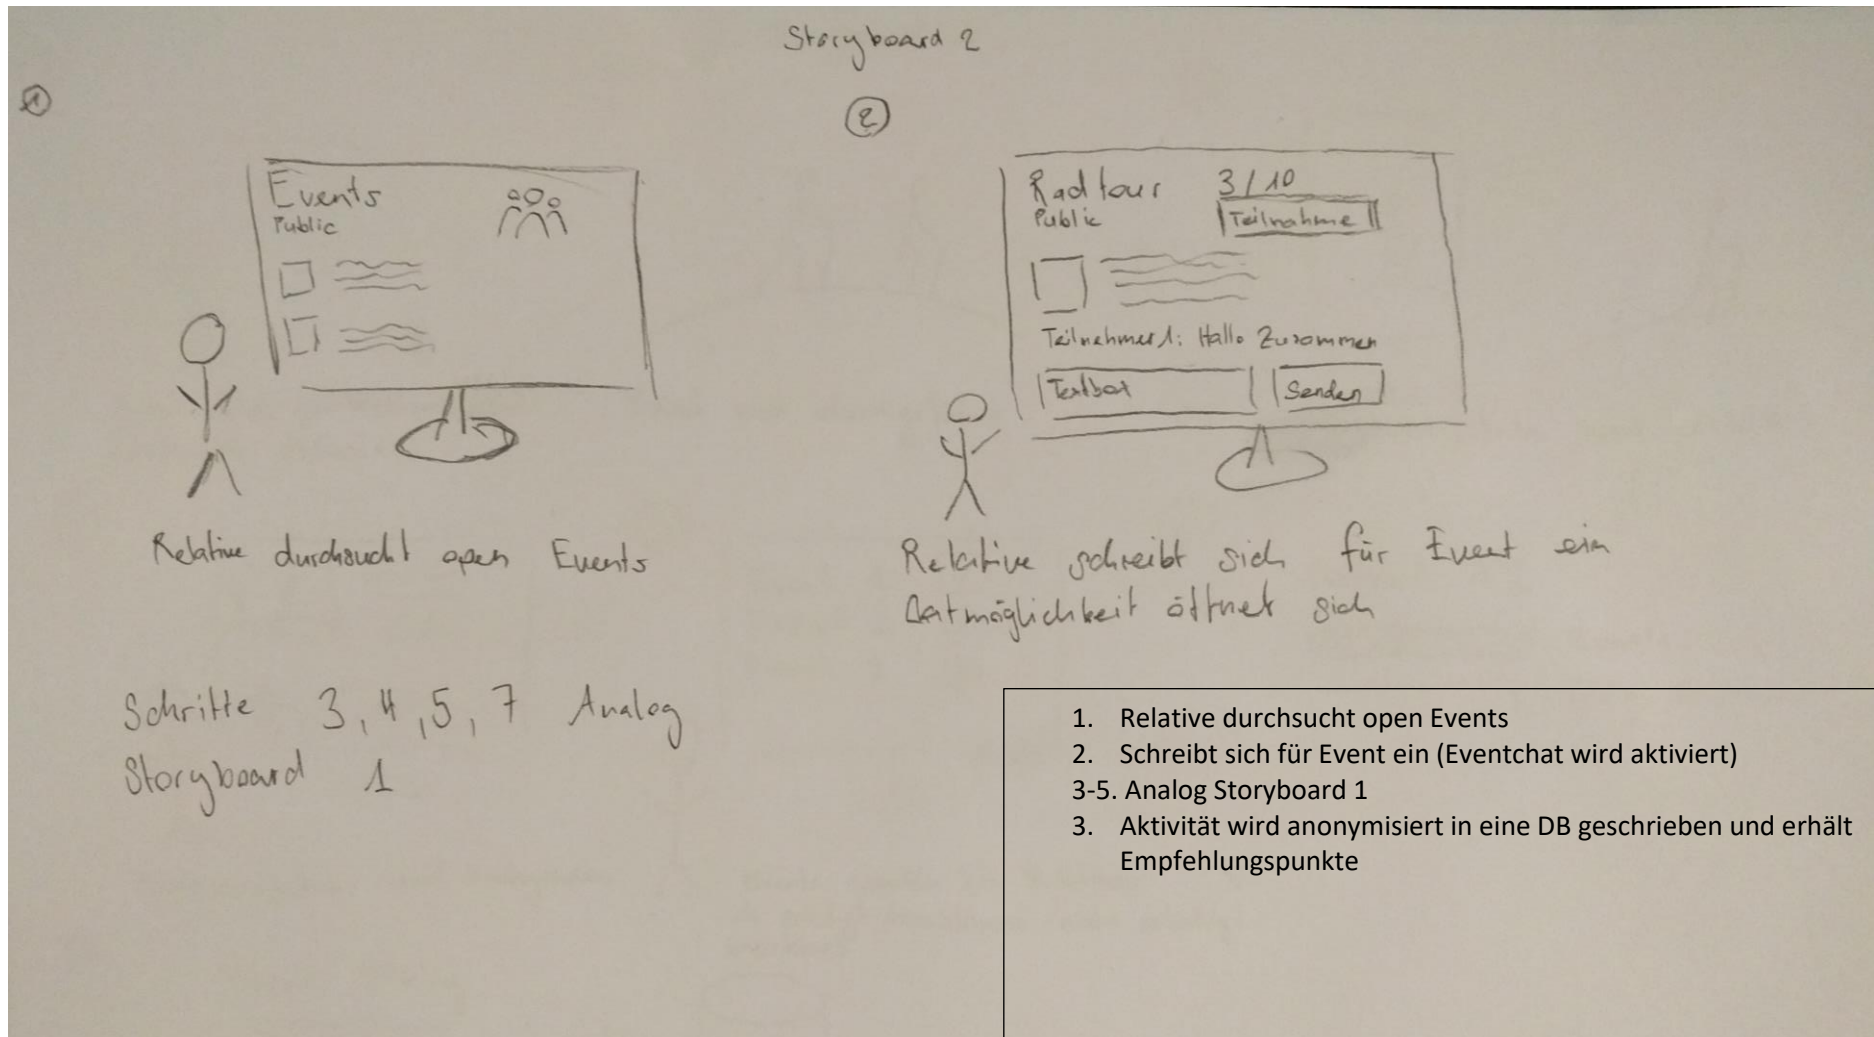 Storyboard 2
1
Events
Public
Relative durchsucht open Events
2
Radtour 3/10
Public Teilnahme
Teilnehmer 1: Hallo Zusammen
Textbox Senden
Relative schreibt sich für Event ein
Catmöglichkeit öffnet sich
Schritte 3, 4, 5, 7 Analog
Storyboard 1
1. Relative durchsucht open Events
2. Schreibt sich für Event ein (Eventchat wird aktiviert)
3-5. Analog Storyboard 1
3. Aktivität wird anonymisiert in eine DB geschrieben und erhält
Empfehlungspunkte